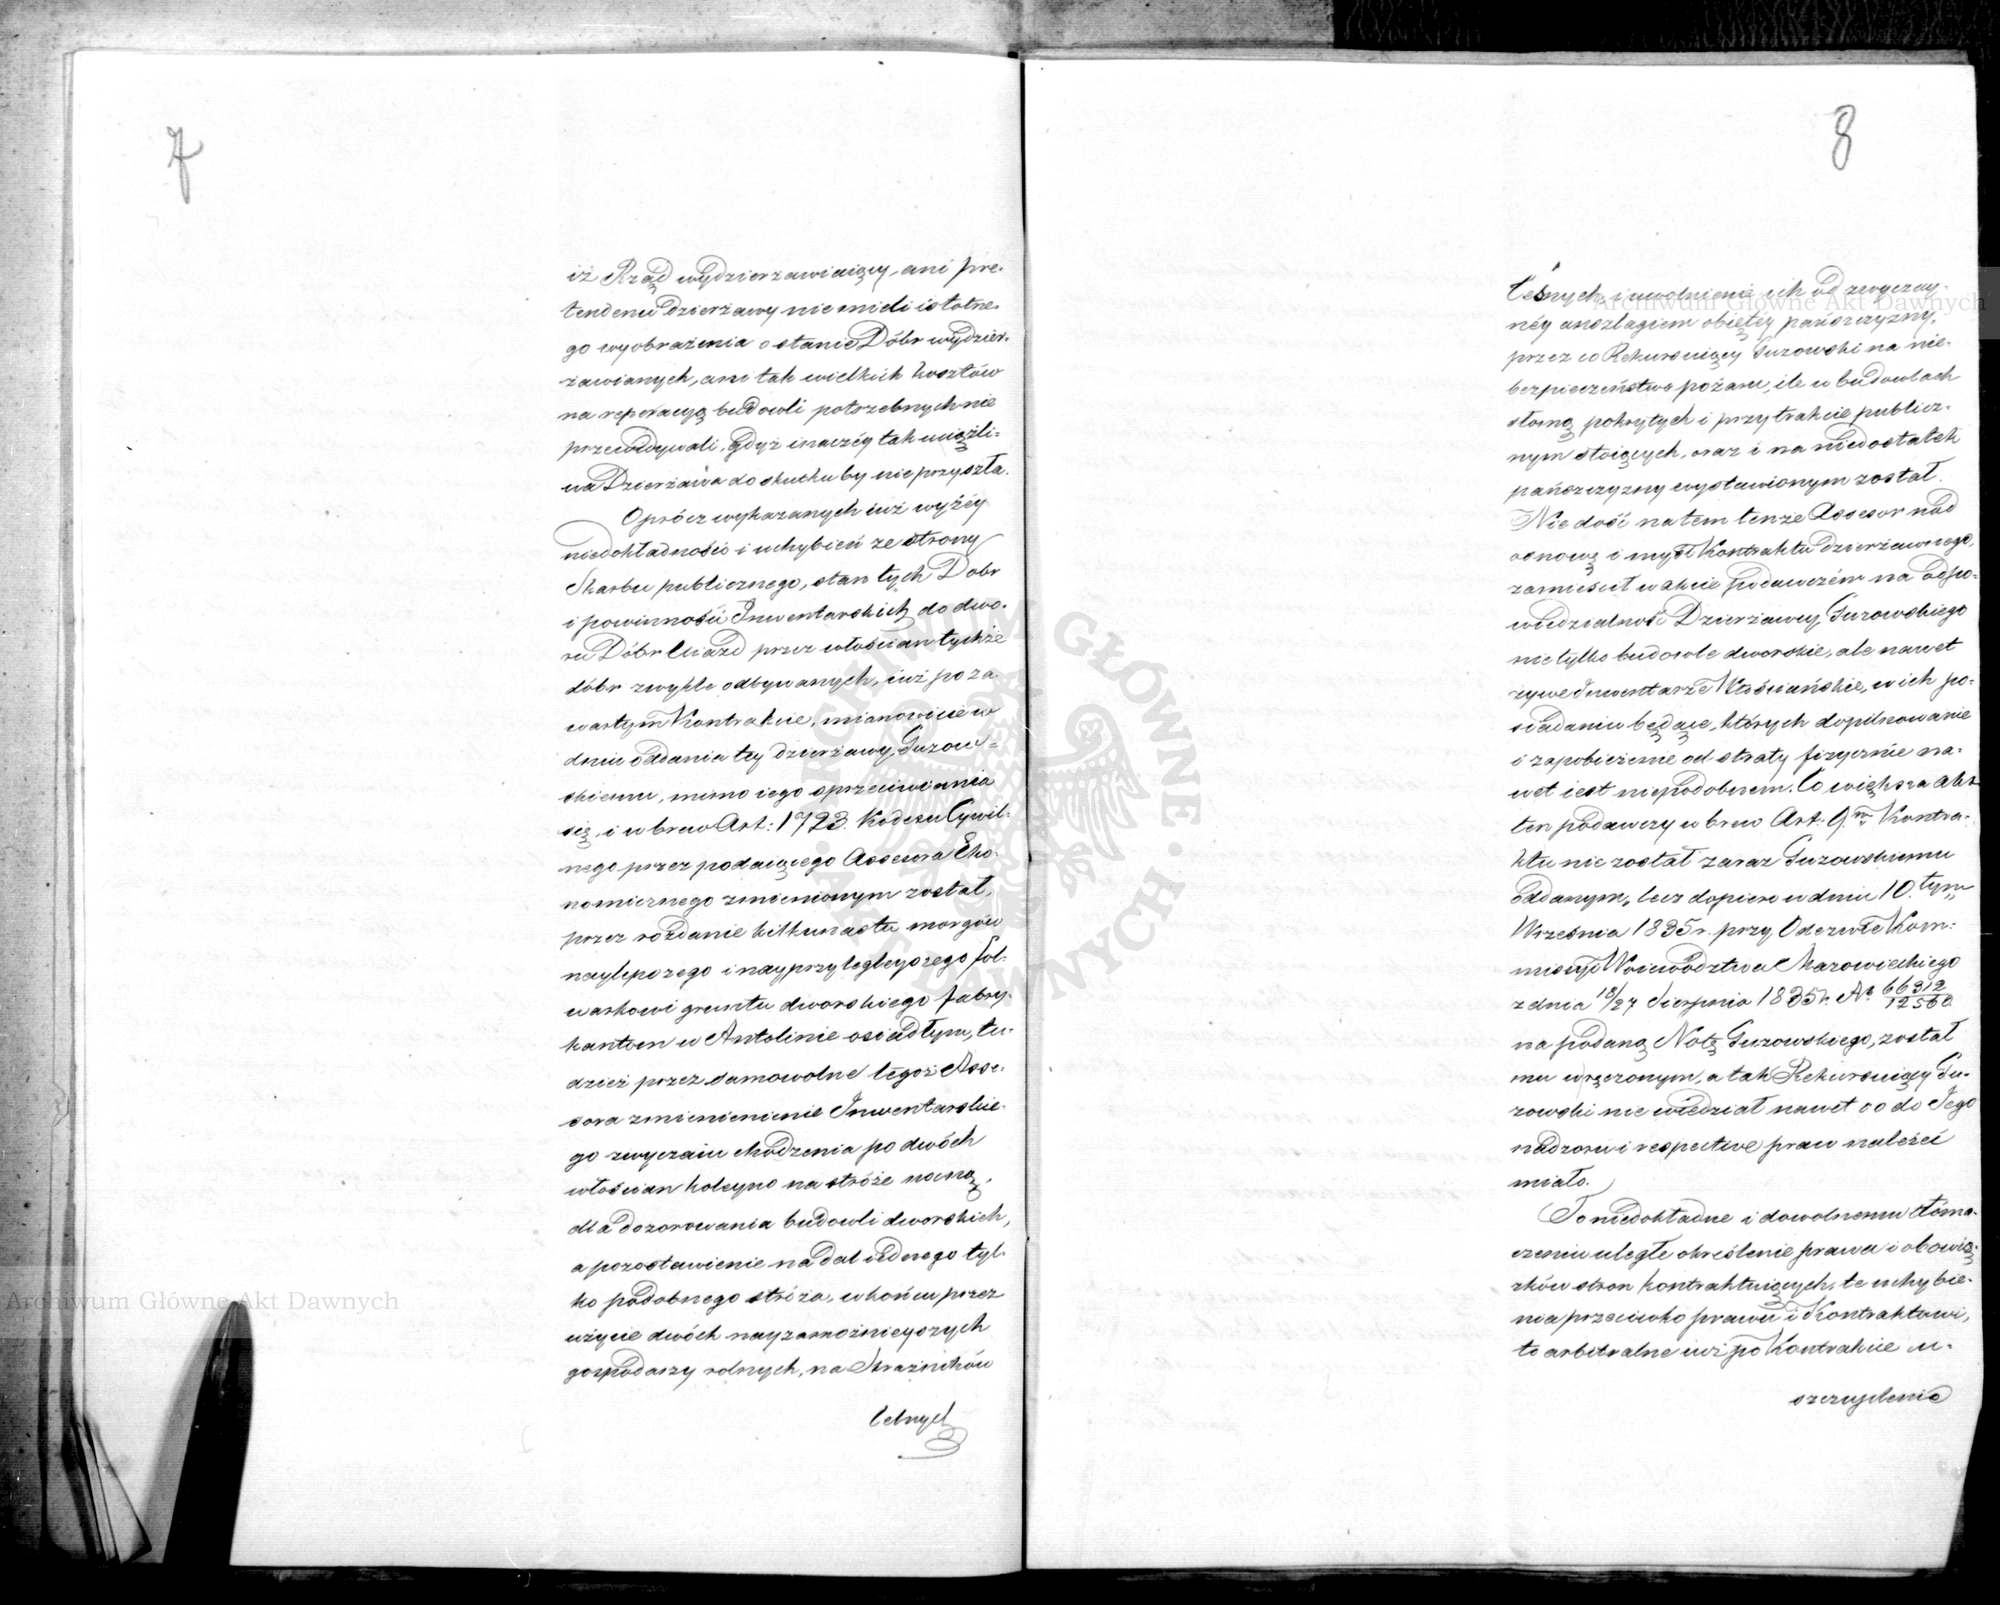 7
iż Rząd wydzierzawiaiący, ani pre-
tendenci dzierżawy nie mieli istotne-
go wyobrażenia o stanie Dóbr wydzier-
żawianych, ani tak wielkich kosztów
na reperacyą budowli potrzebnych nie
przewidywali, gdyż inaczéy tak uciążli-
wa Dzierżawa do skutku by nie przyszła.
Oprócz wykazanych iuż wyżéy
niedokładności i uchybień ze strony
Skarbu publicznego, stan tych Dobr
i powinności Inwentarskich do dwo-
ru Dóbr Uiazd przez włościan tychże
dóbr zwykle odbywanych, iuż po za
wartym Kontrakcie, mianowicie w
dniu oddania tey dzierżawy, Gurow-
skiemu, mimo iego sprzeciwiania
się, i wbrew Art: 1723. Kodexu Cywil-
nego przez podaiącego Assesora Eko-
nomicznego zmienionym został,
przez rozdanie kilkunastu morgów
naylepszego i nayprzyległeyszego fol-
warkowi gruntu dworskiego fabry-
kantom w Antolinie osiadłym, tu-
dzież przez samowolne tegoż Asse-
sora zmienienie Inwentarskie-
go zwyczaiu chodzenia po dwóch
włościan koleyno na stróże nocną,
dla dozorowania budowli dworskich,
a pozostawienie nadal iednego tyl-
ko podobnego stróża, wkońcu przez
użycie dwóch nayzamożnieyszych
gospodarzy rolnych, na Strażników
Leśnych
8
Leśnych, i uwolnienie ich od zwyczay-
néy anszlagiem obiętéy pańszczyzny,
przez co Rekursuiący Gurowski na nie-
bezpieczeństwo pożaru, ile w budowlach
słomą pokrytych i przy trakcie publicz-
nym stoiących, oraz i na niedostatek
pańszczyzny wystawionym został.
Nie dość na tem tenże Assesor nad
osnowę i myśl Kontraktu dzierżawnego,
zamieścił w akcie podawczém na odpo-
wiedzialność Dzierżawcy Gurowskiego
nie tylko budowle dworskie, ale nawet
żywe Inwentarze Włościańskie, w ich po-
siadaniu będące, których dopilnowanie
i zapobieżenie od straty fizycznie na-
wet iest niepodobnem. Co większa akt
ten podawczy wbrew Art: 9.m Kontra-
ktu nie został zaraz Gurowskiemu
oddanym, lecz dopiero w dniu 10.tym
Września 1835 r. przy Odezwie Kom-
missyi Woiewództwa Mazowieckiego
z dnia 15/27 Sierpnia 1835 r. No 66312/12560
na podaną Notę Gurowskiego, został
mu wręczonym, a tak Rekursuiący Gu-
rowski nie wiedział nawet co do Jego
nadzoru i respective praw należeć
miało.
To niedokładne i dowolnemu tłóma-
czeniu uległe określenie prawa i obowią-
zków stron kontraktuiących, te uchybie-
nia przeciwko prawu i Kontraktowi,
to arbitralne iuż po Kontrakcie u-
szczuplenie
Archiwum Główne Akt Dawnych
Archiwum Główne Akt Dawnych
ARCHIWUM GŁÓWNE · AKT DAWNYCH ·